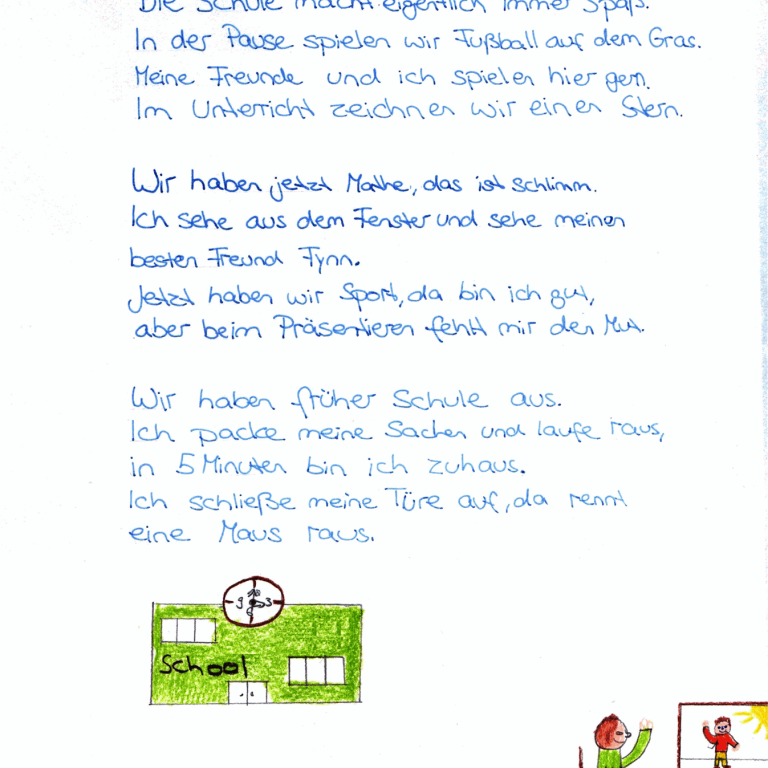 Die Schule macht eigentlich immer Spaß.
In der Pause spielen wir Fußball auf dem Gras.
Meine Freunde und ich spielen hier gern.
Im Unterricht zeichnen wir einen Stern.
Wir haben jetzt Mathe, das ist schlimm.
Ich sehe aus dem Fenster und sehe meinen
besten Freund Fynn.
Jetzt haben wir Sport, da bin ich gut,
aber beim Präsentieren fehlt mir der Mut.
Wir haben früher Schule aus.
Ich packe meine Sachen und laufe raus,
in 5 Minuten bin ich zuhaus.
Ich schließe meine Türe auf, da rennt
eine Maus raus.
12
9 3
6
School